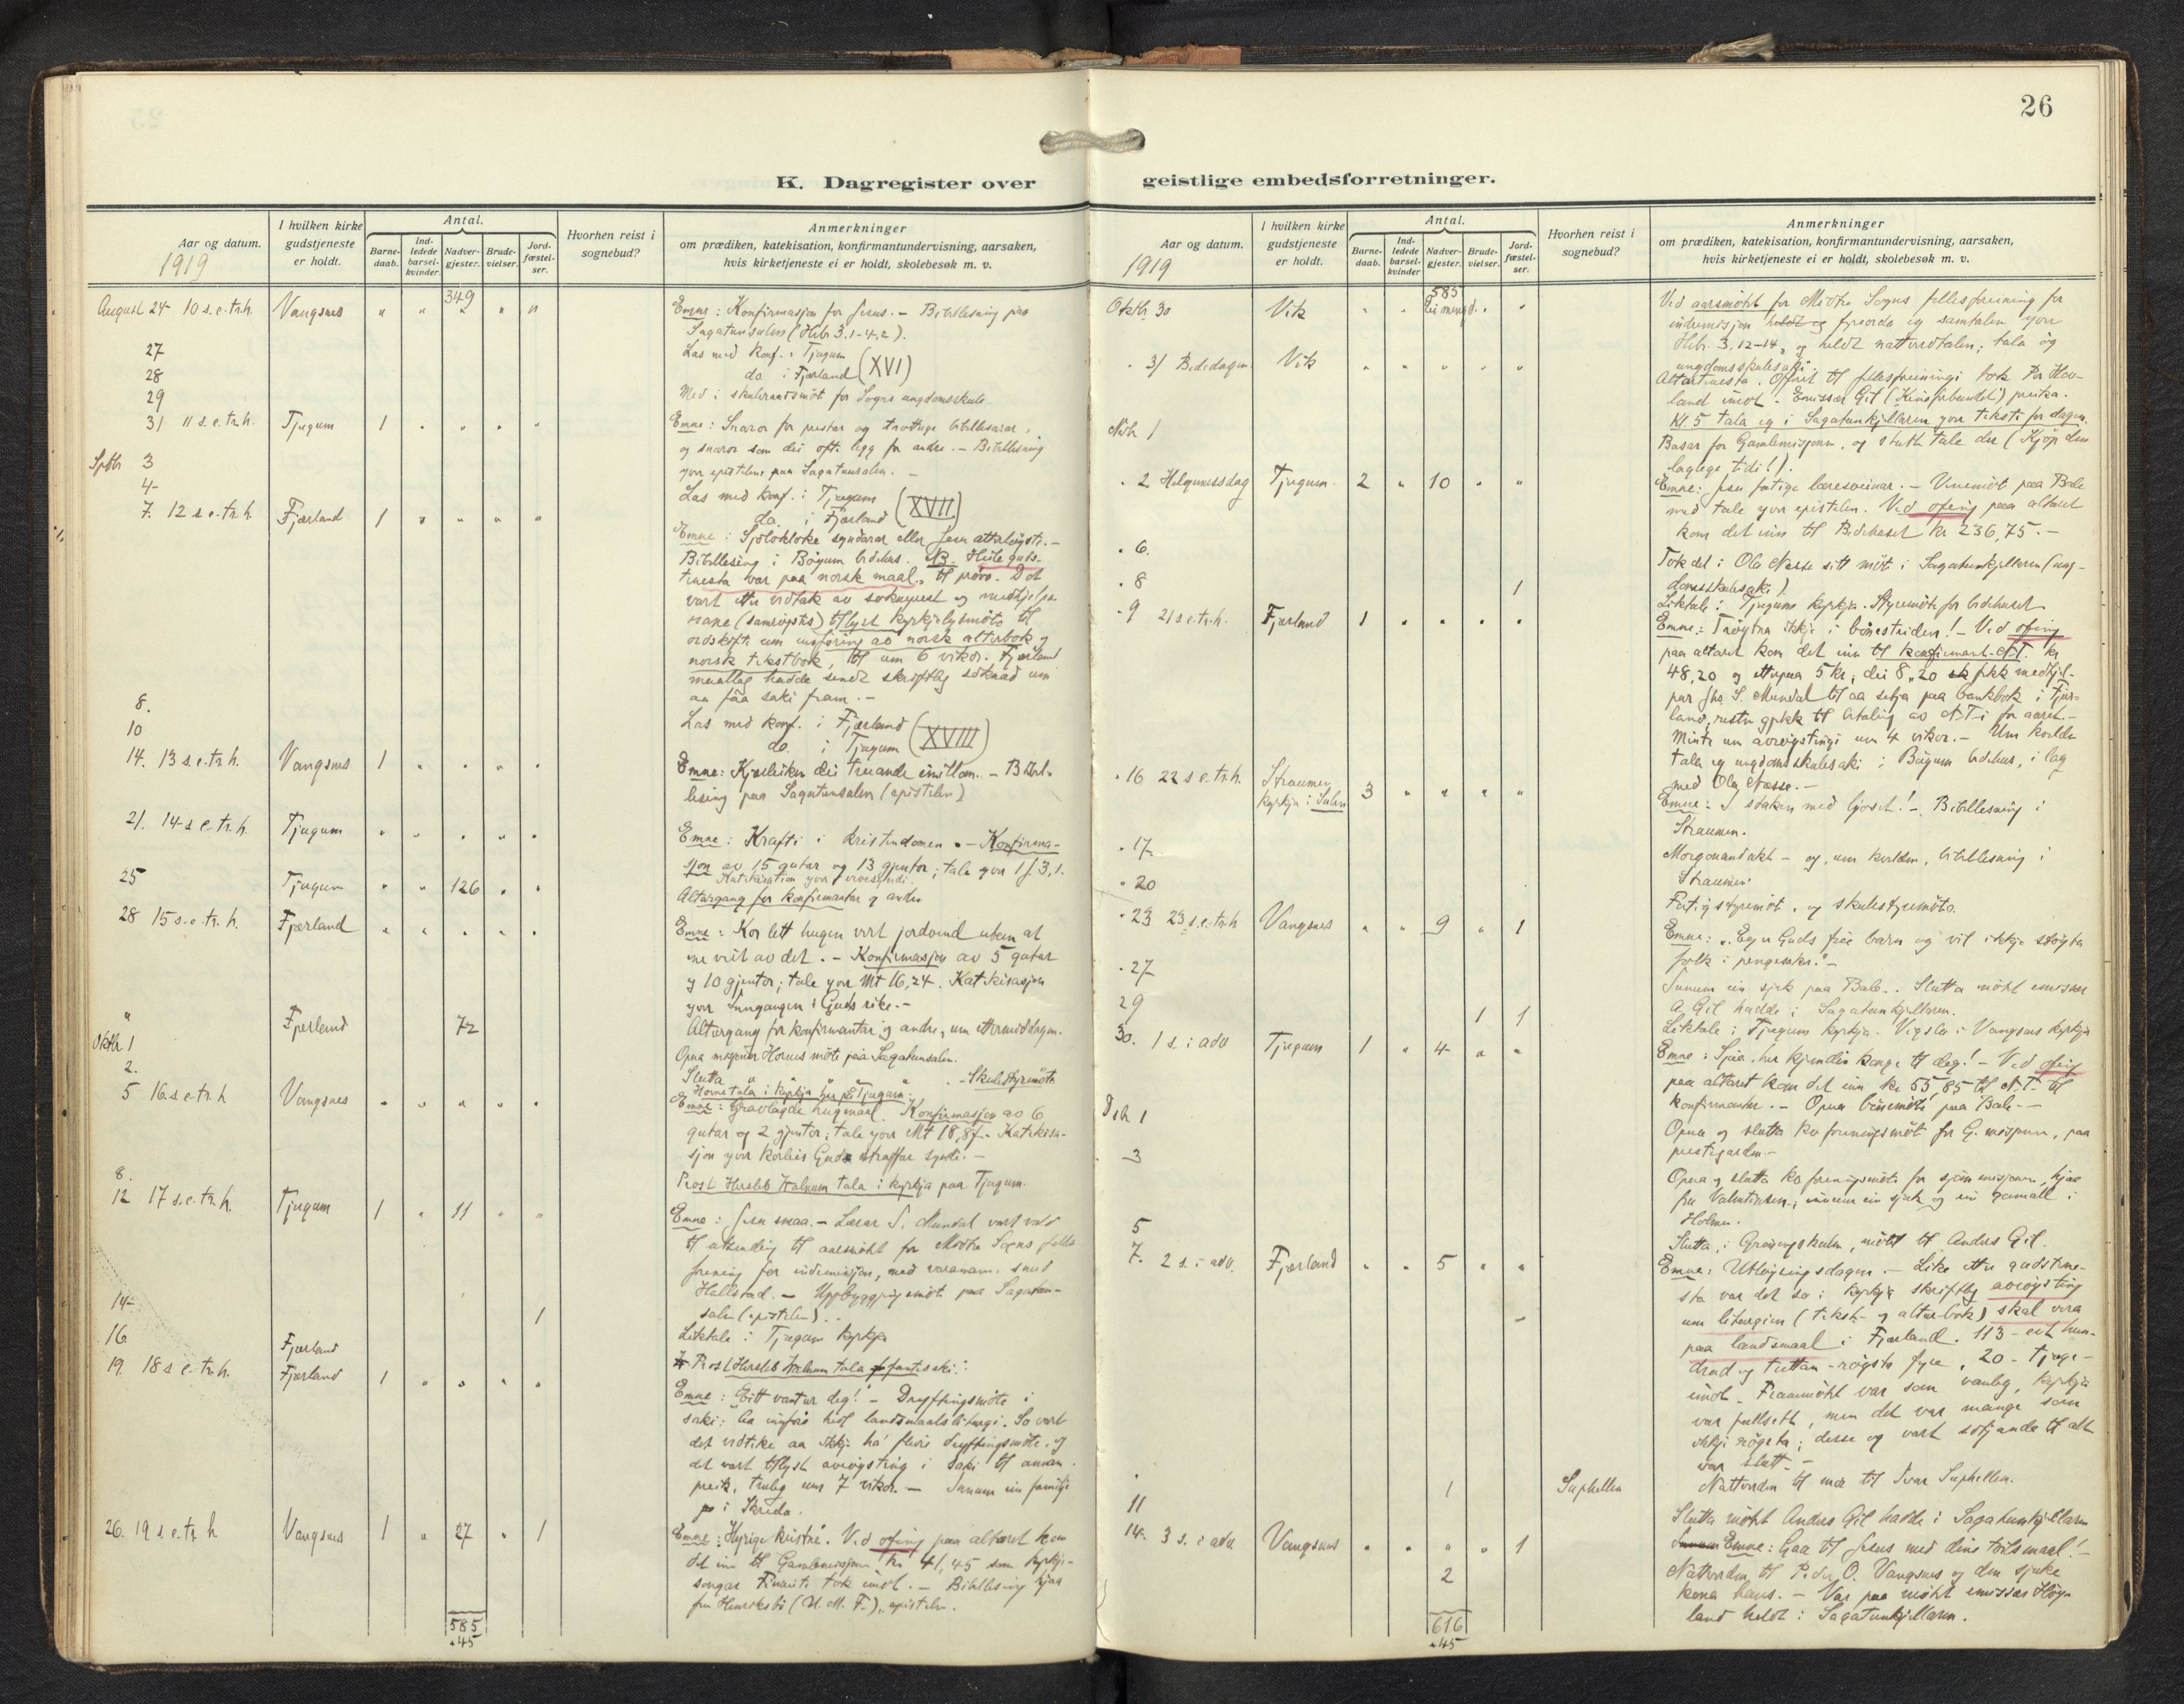 26
K. Dagregister over
geistlige embedsforretninger.
Aar og datum.
1919
I hvilken kirke
gudstjeneste
er holdt.
Antal.
Barne-
daab.
Ind-
ledede
barsel-
kvinder.
Nadver-
gjester.
Brude-
vielser.
Jord-
fæstel-
ser.
Hvorhen reist i
sognebud?
Anmerkninger
om prædiken, katekisation, konfirmantundervisning, aarsaken,
hvis kirketjeneste ei er holdt, skolebesøk m. v.
349
August 24 10 s. e. tr. h. Vangsnes " " " " "
Emne: Konfirmasjon for Jesus. – Bibellesning paa
Sagatunsalen (Hebr. 3.1-4,2).
27 Las med konf. i Tjugum
28 do i Fjærland (XVI)
29 Med i skuleraadsmöt for Sogns ungdomsskule.
31 11 s. e. tr. h. Tjugum 1 " " " "
Emne: Snaror for prestar og
og snaror som dei oft legg for andre. – Bibellesning
yver epistelen paa Sagatunsalen. –
Septbr 3 Las med konf. i Tjugum
4 do. i Fjærland (XVII)
7. 12 s. e. tr. h. Fjærland 1 " " " "
Emne: syndarar eller attløyste. –
Bibellesing i Bøyum bedehus. NB. Heile guds-
tenesta var paa norsk maal, til prøve. Det
vart etter vedtak av soknepresten og medhjelpa-
rane (samrøystes) tillyst kyrkjelydsmöte til
ordskift um innføring av norsk alterbok og
norsk tekstbok, til um 6 vikor. Fjærland
maallag hadde sendt skriftleg söknad um
aa faa saki fram. –
8. Las med konf. i Fjærland
10 do. i Tjugum (XVIII)
14. 13 s. e. tr. h. Vangsnes 1 " " " "
Emne: Kjærleiken dei truande imillom. – Bibel-
lesing paa Sagatunsalen (epistelen)
21. 14 s. e. tr. h. Tjugum " " " " "
Emne: Krafti i kristendomen. – Konfirma-
sjon av 15 gutar og 13 gjentor; tale yver 1 J. 3,1.
Katekisation yver arvesyndi.
25 Tjugum " " 126 " "
Altargang for konfirmantar og andre
28 15 s. e. tr. h. Fjærland " " " " "
Emne: Kor lett hugen vert jordvend uten at
me veit av det. – Konfirmasjon av 5 gutar
og 10 gjentor; tale yver Mt 16,24. Katekisasjon
yver Inngangen i Guds rike. –
" Fjærland 72
Altargang for konfirmantar og andre, um ettermiddagen.
Oktbr 1 Opna Hornes möte paa Sagatunsalen.
2. Slutta " " " " – Skulestyremöte
Horne tala i kyrkja her paa Tjugum.
5 16. s. e. tr. h Vangsnes " " " " "
Emne: Gravlagde hugmaal. Konfirmasjon av 6
gutar og 2 gjentor; tale yver Mt 18,8f. Katekisa-
sjon yver korleis Gud straffar syndi. –
8. Prost Hersleb Walnum tala i kyrkja paa Tjugum.
12 17 s. e. tr. h. Tjugum 1 " 11 " "
Emne: Jesu smaa. – Lærar S. Mundal vart vald
til utsending til aarsmöht for Midtre Sogns felles
forening for indremisjon, med varamann
Hallstad. – Uppbyggjingsmöte paa Sagatun-
salen (epistelen).
14 1 Liktale i Tjugum kyrkja
16 Fjærland Prost Hersleb Walnum tala f. fantesaki.
19. 18 s. e. tr. h. Fjærland 1 " " " "
Emne: Eitt vantar deg! – Drøftingsmöte i
saki: Aa innføre heil landsmaalsliturgi. So vart
det vedteke aa ikkje ha fleire drøftingsmöte, og
det vart tillyst avrøysting i saki til annan
preik, truleg um 7 vikor. – Innum ein familie
i Skreda.
26. 19 s. e. tr. h Vangsnes 1 " 27 " 1
Emne: Hyrige kristne. Ved ofring paa altaret kom
det inn til Gamlemisjonen kr. 41,45 som kyrkje-
songar Finaute tok imot. – Bibellesing hjaa
fru Henriksbö (U. M. F.), epistelen.
585
+45
Aar og datum.
1919
I hvilken kirke
gudstjeneste
er holdt.
Antal.
Barne-
daab.
Ind-
ledede
barsel-
kvinder
Nadver-
gjester.
Brude-
vielser.
Jord-
fæstel-
ser.
Hvorhen reist i
sognebud?
Anmerkninger
om prædiken, katekisation, konfirmantundervisning, aarsaken,
hvis kirketjeneste ei er holdt, skolebesøk m. v.
585
Oktbr. 30 Vik " " Ei mengd. " "
Ved aarsmöht for Midtre Sogns fellesforeining for
indremisjon heldt eg fyreordo og samtalen yver
Hebr. 3,12-14, og heldt nattverdtalen; tala og
ungdomsskulesaki.
" 31 Bededagen Vik " " " " "
Altartenesta. Ofret til fellesforeiningi tok Per Hov-
land imot. Emissær Gil (Kinaforbundet) preika.
Kl 5 tala eg i Sagatunkjellaren yver teksti for dagen.
Nvbr 1 Basar for Gamlemisjonen, og stutt tale der (Kjøp den
laglege tidi!).
" 2 Helgemessdag Tjugum. 2 " 10 " "
Emne: Jesu fatige læresveinar. – Venemöt paa Bale
med tale yver epistelen. Ved ofring paa altaret
kom det inn til Bedehuset kr 236,75. –
" 6. Tok del i Ola Næsse sitt möt i Sagatunkjellaren (ung-
domsskulesaki)
" 8 1 Liktale i Tjugum kyrkja. Styremöte for bedehuset
" 9 21 s e. tr. h. Fjærland 1 " " " "
Emne: Trøytna ikkje i bönestriden! – Ved ofring
paa altaret kom det inn til konfirmant-N.T. kr
48,20 og attpaa 5 kr; dei 8,20 fekk medhjel-
par Jhs. S. Mundal til aa setja paa bankbok i Fjær-
land, resten gjekk til betaling av N.T-i for aaret. –
Minte um avrøystingi um 4 vikor. – Um kvelden
tala eg ungdomsskulesaki i Bøyum bedehus, i lag
med Ola Næsse. –
" 16 22 s e. tr. h. Straumen
kyrkja i Solun 3 " " " "
Emne: I staken med ljoset! – Bibellesning i
Straumen.
" 17. Morgonandakt – og, um kvelden, bibellesning i
Straumen.
" 20 Fatigstyremöt, og skulestyremöte.
" 23 23 s. e. tr. h Vangsnes " " 9 " 1
Emne: "Eg er Guds frie barn og vil ikkje støyta
folk i pengesaker." –
" 27 Innum ein sjuk paa Bale. Slutta möht emissær
A. Gil hadde i Sagatunkjellaren.
29 1 1 Liktale i Tjugum kyrkja. Vigsla i Vangsnes kyrkja
30. 1 s. i adv Tjugum 1 " 4 " "
Emne: Sjaa, her kjem din konge til deg! – Ved ofring
paa altaret kom det inn kr 55,85 til N.T. til
konfirmantar. – Opna bönemöte paa Bale. –
Dsbr 1 Opna og slutta kv.foreningsmöt for G. misjonen, paa
prestegarden. –
3 Opna og slutta kv.foreningsmöte for sjömannsmisjonen, hjaa
fru Valentinsen, innum ein sjuk og ein gamall i
Holmen.
5 Slutta, i Grøningskulen, mötet til Anders Gil.
7. 2 s. i adv. Fjærland " " 5 " "
Emne: Utløysingsdagen. – Like etter gudstene-
sta var det so i kyrkja skriftleg avrøysting
um liturgien (tekst- og alterbok) skal vera
paa landsmaal i Fjærland. 113 – eit hun-
drad og trettan – røysta fyre, 20 – tjuge –
imot. Frammöht var som vanleg, kyrkja
var fullsett, men det var mange som
ikkje røysta; desse og vart sitjande til alt
var slutt. –
" 1 Suphellen Nattverden til mor til Ivar Suphellen.
11 Slutta möht Anders Gil hadde i Sagatunkjellaren
14. 3 s. i adv Vangsnes " " " " 1
Emne: Gaa til Jesus med dine tolsmaal! –
2 Nattverden til Peder O. Vangsnes og den sjuke
kona hans. – Var paa möht emissær Høy-
land heldt i Sagatunkjellaren.
616
+45